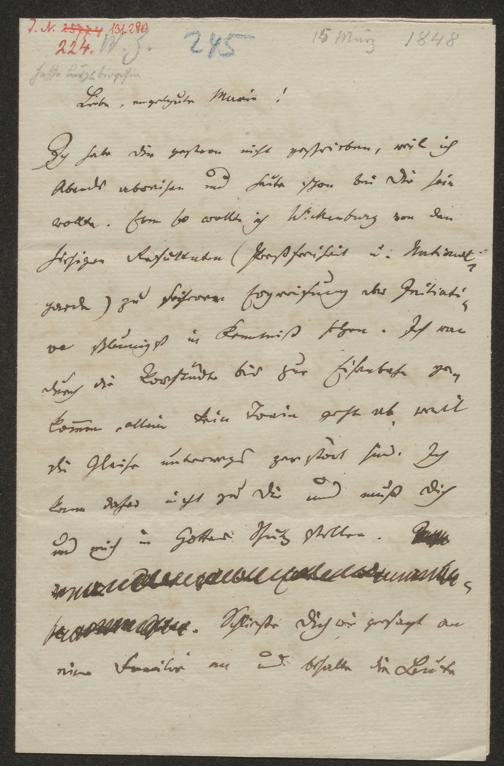 I. N. 131.290
224.
245
15 März 1848
Liebe, engelgute Marie!
Ich habe Dir gestern nicht geschrieben, weil ich
Abends abreisen und heute schon bei Dir sein
wollte. Eben so wollte ich Wickenburg von den
hiesigen Resultaten (Preßfreiheit u. National-
garde) zu Ergreifung der Initiati-
ve in Kenntniß setzen. Ich war
durch die Vorstädte bis zur Eisenbahn ge-
kommen, allein kein Train geht ab, weil
die Gleise unterwegs zerstört sind. Ich
kann daher nicht zu Dir und muß Dich
und mich in Gottes Schutz stellen.
Schließe Dich wie gesagt an
eine Familie an und behalte die Leute